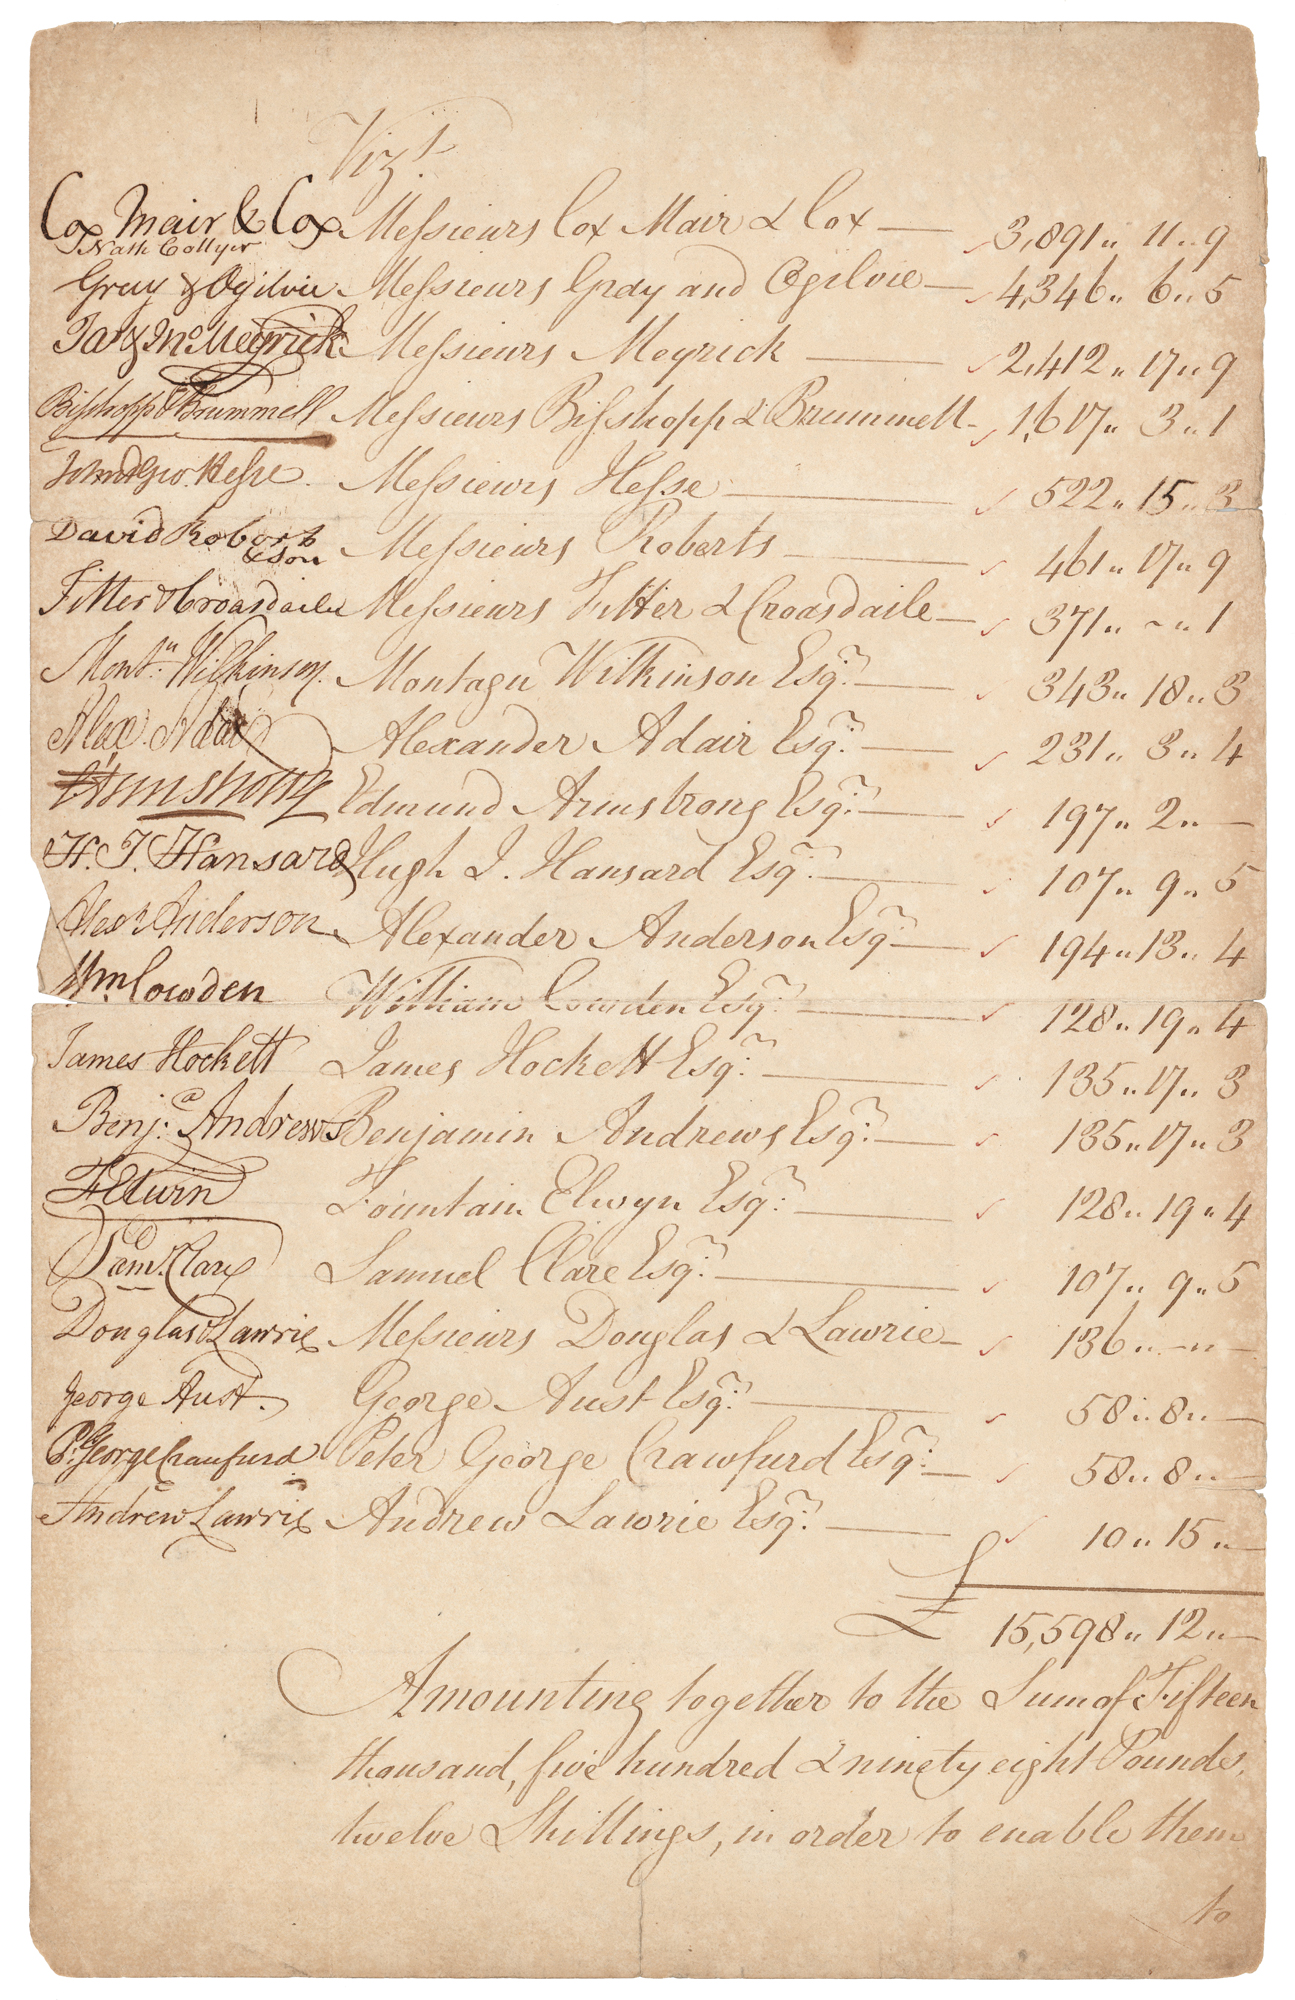 Vizt.
Cox Mair & Cox Messieurs Cox Mair & Cox — 3,891 " 11 " 9
Nath Collyer
Gray & Ogilvie Messieurs Gray and Ogilvie — 4,346 " 6 " 5
Jas & Ms Meyrick Messieurs Meyrick — 2,412 " 17 " 9
Bisshopp & Brummell Messieurs Bisshopp & Brummell - 1,617 " 3 " 1
John & Geo. Hesse. Messieurs Hesse — 522 " 15 " 3
David Roberts Messieurs Roberts — 461 " 17 " 9
& Son
Fitter & Croasdaile Messieurs Fitter & Croasdaile — 371 " ~ " 1
Montu. Wilkinson. Montagu Wilkinson Esqr: — 343 " 18 " 3
Alex. Adair Alexander Adair Esqr: — 231 " 3 " 4
E Armstrong Edmund Armstrong Esqr: — 197 " 2 " —
H. J. Hansard Hugh J. Hansard Esqr: — 107 " 9 " 5
Alexr Anderson Alexander Anderson Esqr: — 194 " 13 " 4
Wm Cowden William Cowden Esqr: — 128 " 19 " 4
James Hockett James Hockett Esqr: — 135 " 17 " 3
Benja: Andrews Benjamin Andrews Esqr: — 135 " 17 " 3
F Elwin Fountain Elwyn Esqr: — 128 " 19 " 4
Saml. Clare Samuel Clare Esqr: — 107 " 9 " 5
Douglas & Lawrie Messieurs Douglas & Lawrie — 136 " — " —
George Aust. George Aust Esqr: — 58 " 8 " —
Pr. George Craufurd Peter George Crawfurd Esqr: — 58 " 8 " —
Andrew Lawrie Andrew Lawrie Esqr: — 10 " 15 " —
£ 15,598 " 12 " —
Amounting together to the Sum of Fifteen
thousand, five hundred & ninety eight Pounds,
twelve Shillings, in order to enable them
to